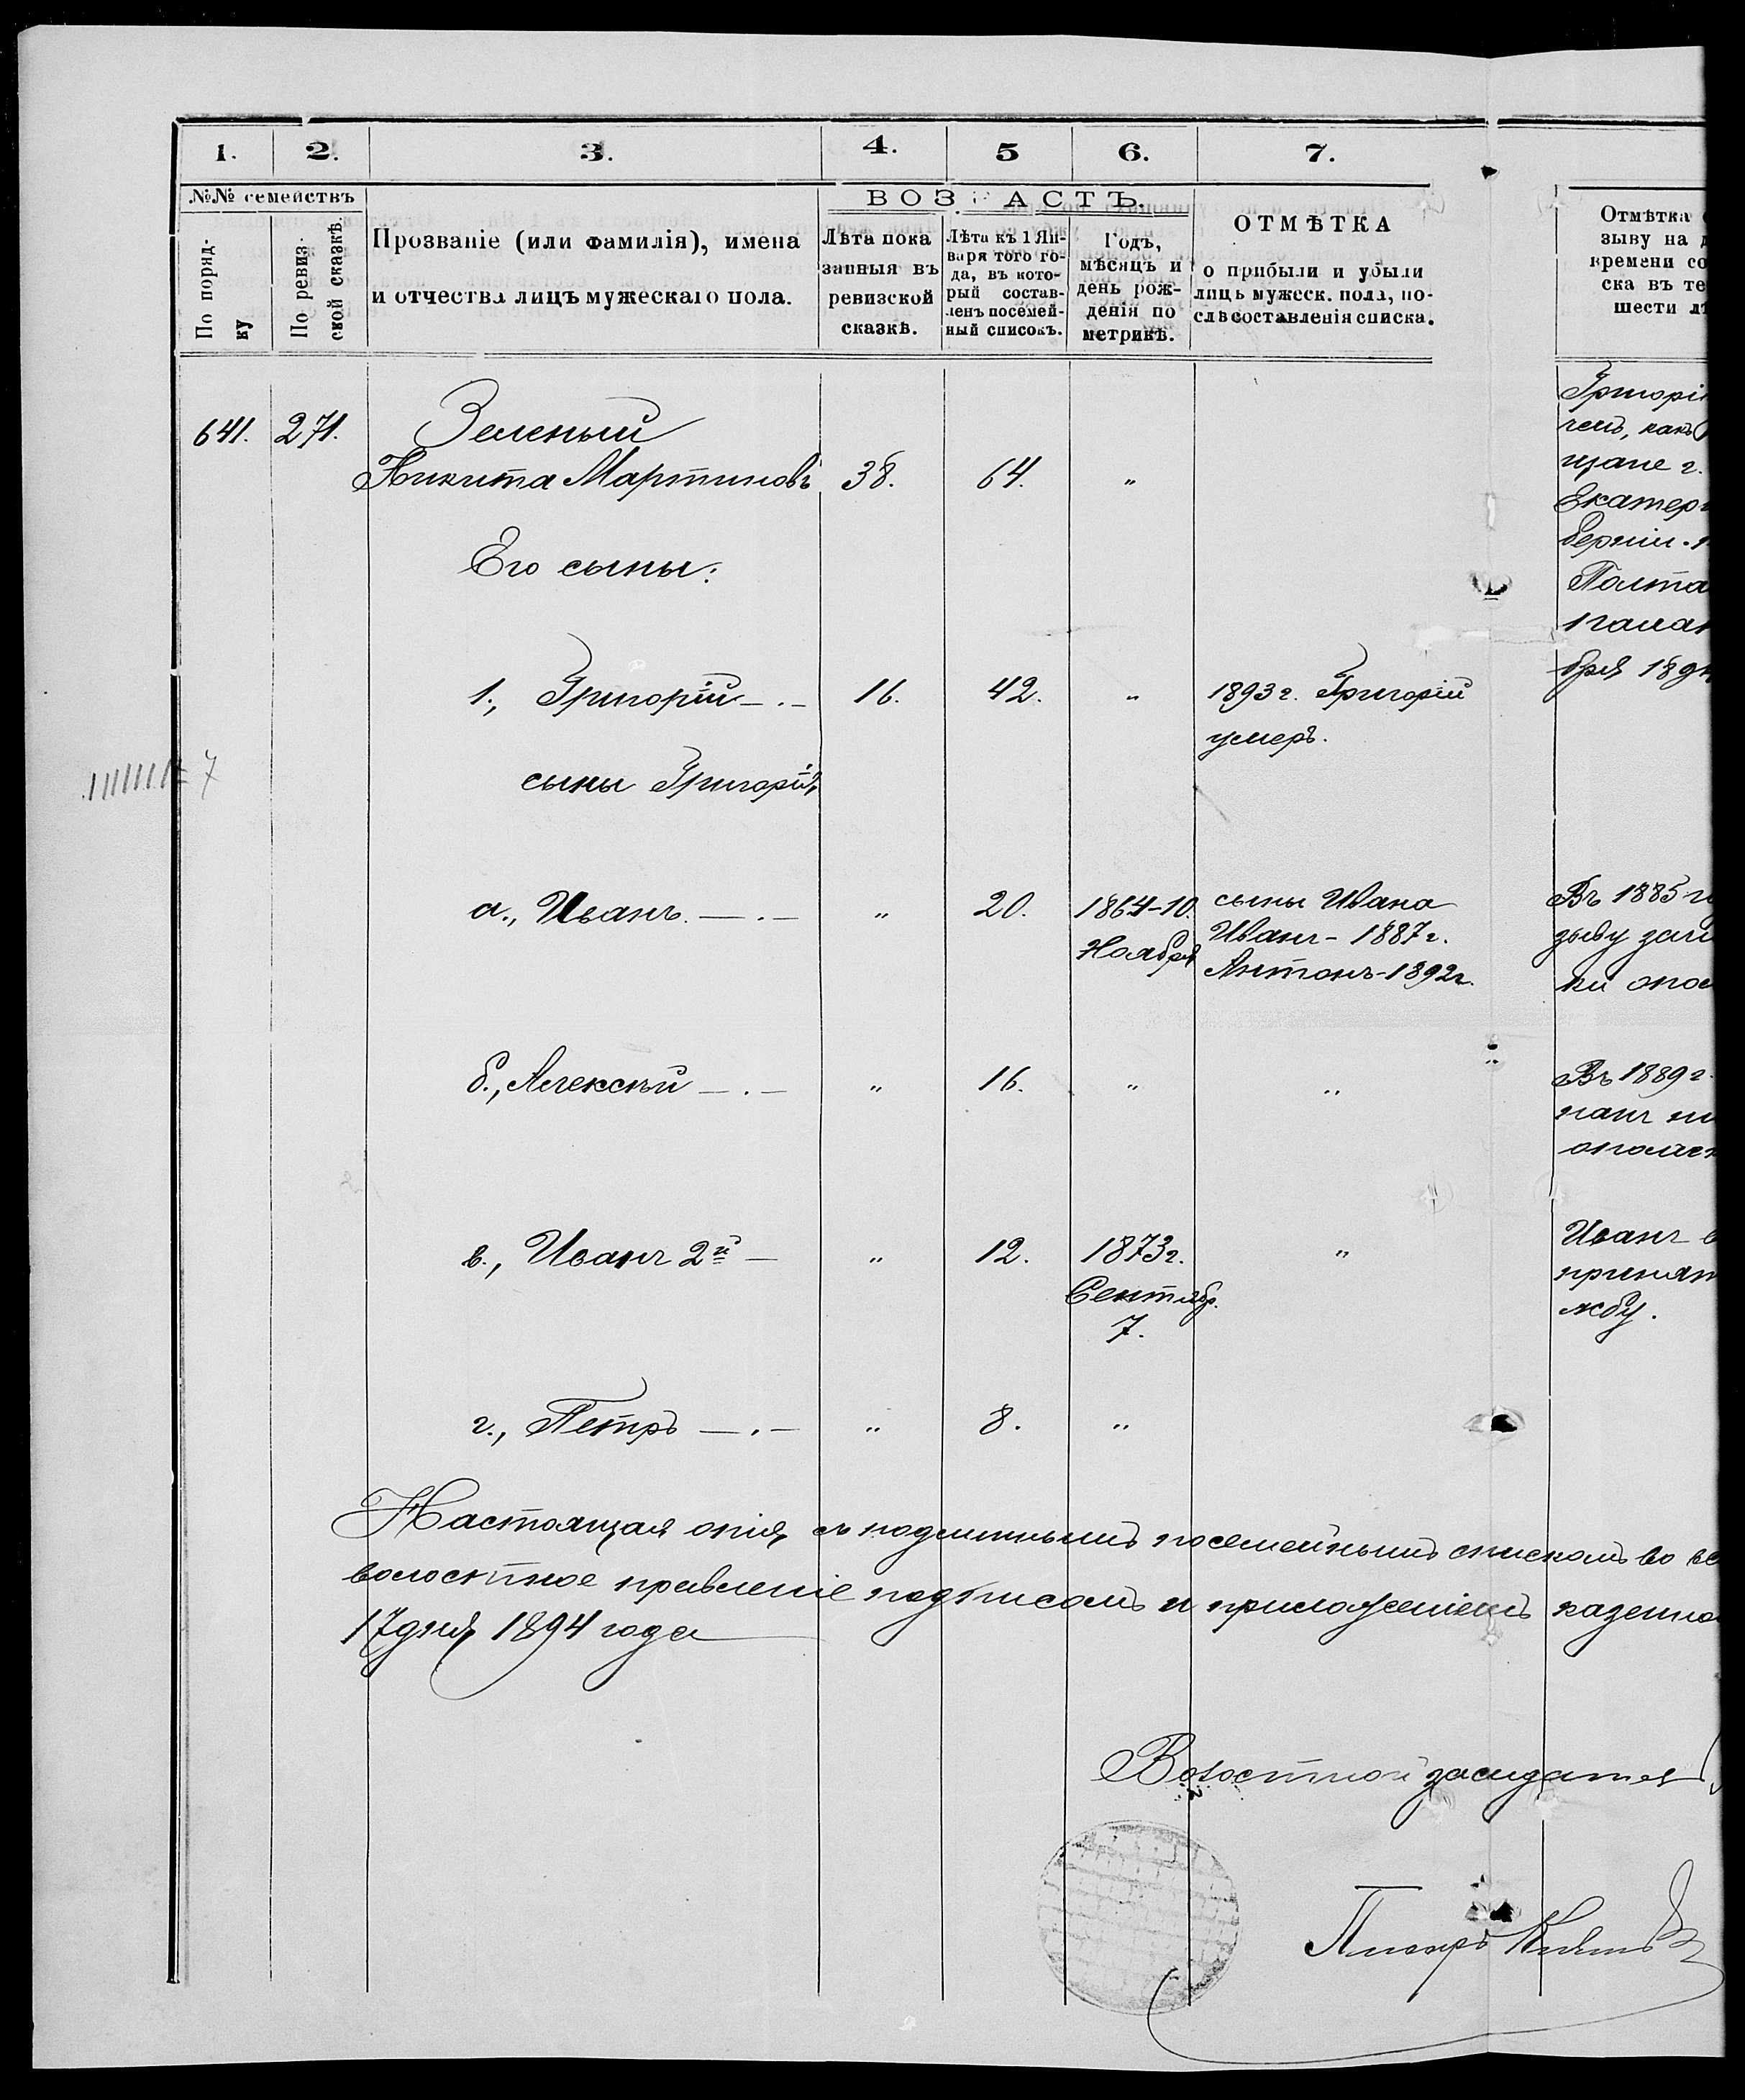 1. 2. 3. 4. 5 6. 7.
№№ семействъ
По поряд-
ку
По ревиз-
ской сказкѣ.
Прозваніе (или фамилія), имена
и отчества лицъ мужескаго пола.
ВОЗ АСТЪ.
Лѣта пока
занныя въ
ревизской
сказкѣ.
Лѣта къ 1 Ян-
варя того го-
да, въ кото-
рый состав-
ленъ посемей-
ный списокъ.
Годъ,
мѣсяцъ и
день рож-
денія по
метрикѣ.
ОТМѢТКА
о прибыли и убыли
лицъ мужеск. пола, по-
слѣ составленія списка.
Отмѣтка
зыву на
времени со
ска въ те
шести лѣ
641. 271. Зеленый
Никита Мартиновъ 38. 64. "
Его сыны:
1., Григорій —.— 16. 42. " 1893 г. Григорій
умеръ.
сыны Григорія,
7
а., Иванъ. —.— " 20. 1864-10. сыны Ивана
Ноября Иванъ - 1887 г.
Антонъ - 1892 г.
б., Алексѣй —.— " 16. " "
в., Иванъ 2й — " 12. 1873 г. "
Сентябр.
7.
г., Петръ —.— " 8. "
Григорій
какъ
щане г.
Екатер
берніи.
Полта
бря 189
Въ 1885 г
зыву зачи
ки опол
Въ 1889 г.
ополчен
Иванъ в
принят
жбу.
Настоящая опія, съ подлиннымъ посемейнымъ спискомъ во вс
волостное правленіе подписомъ и приложеніемъ казенно
17 дня 1894 года
Волостной засидатель
Писарь